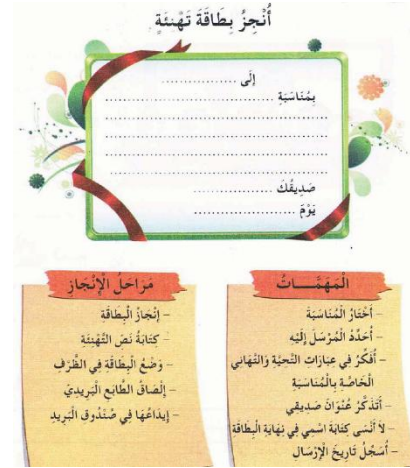 أُنْجِزُ بِطَاقَةَ تَهْنِئَةٍ
إِلَى ..................
بِمُنَاسَبَةِ ..........................................
..........................................................
..........................................................
..........................................................
..........................................................
صَدِيقُكَ ..........................
يَوْمَ ..........................
الْمَهَمَّـــاتُ
- أَخْتَارُ الْمُنَاسَبَةَ
- أُحَدِّدُ الْمُرْسَلَ إِلَيْهِ
- أُفَكِّرُ فِي عِبَارَاتِ التَّحِيَّةِ وَالتَّهَانِي
الْخَاصَّةِ بِالْمُنَاسَبَةِ
- أَتَذَكَّرُ عُنْوَانَ صَدِيقِي
- لاَ أَنْسَى كِتَابَةَ اسْمِي فِي نِهَايَةِ الْبِطَاقَةِ
- أُسَجِّلُ تَارِيخَ الْإِرْسَالِ
مَرَاحِلُ الْإِنْجَازِ
- إِنْجَازُ الْبِطَاقَةِ
- كِتَابَةُ نَصِّ التَّهْنِئَةِ
- وَضْعُ الْبِطَاقَةِ فِي الظَّرْفِ
- إِلْصَاقُ الطَّابَعِ الْبَرِيدِيِّ
- إِيدَاعُهَا فِي صُنْدُوقِ الْبَرِيدِ